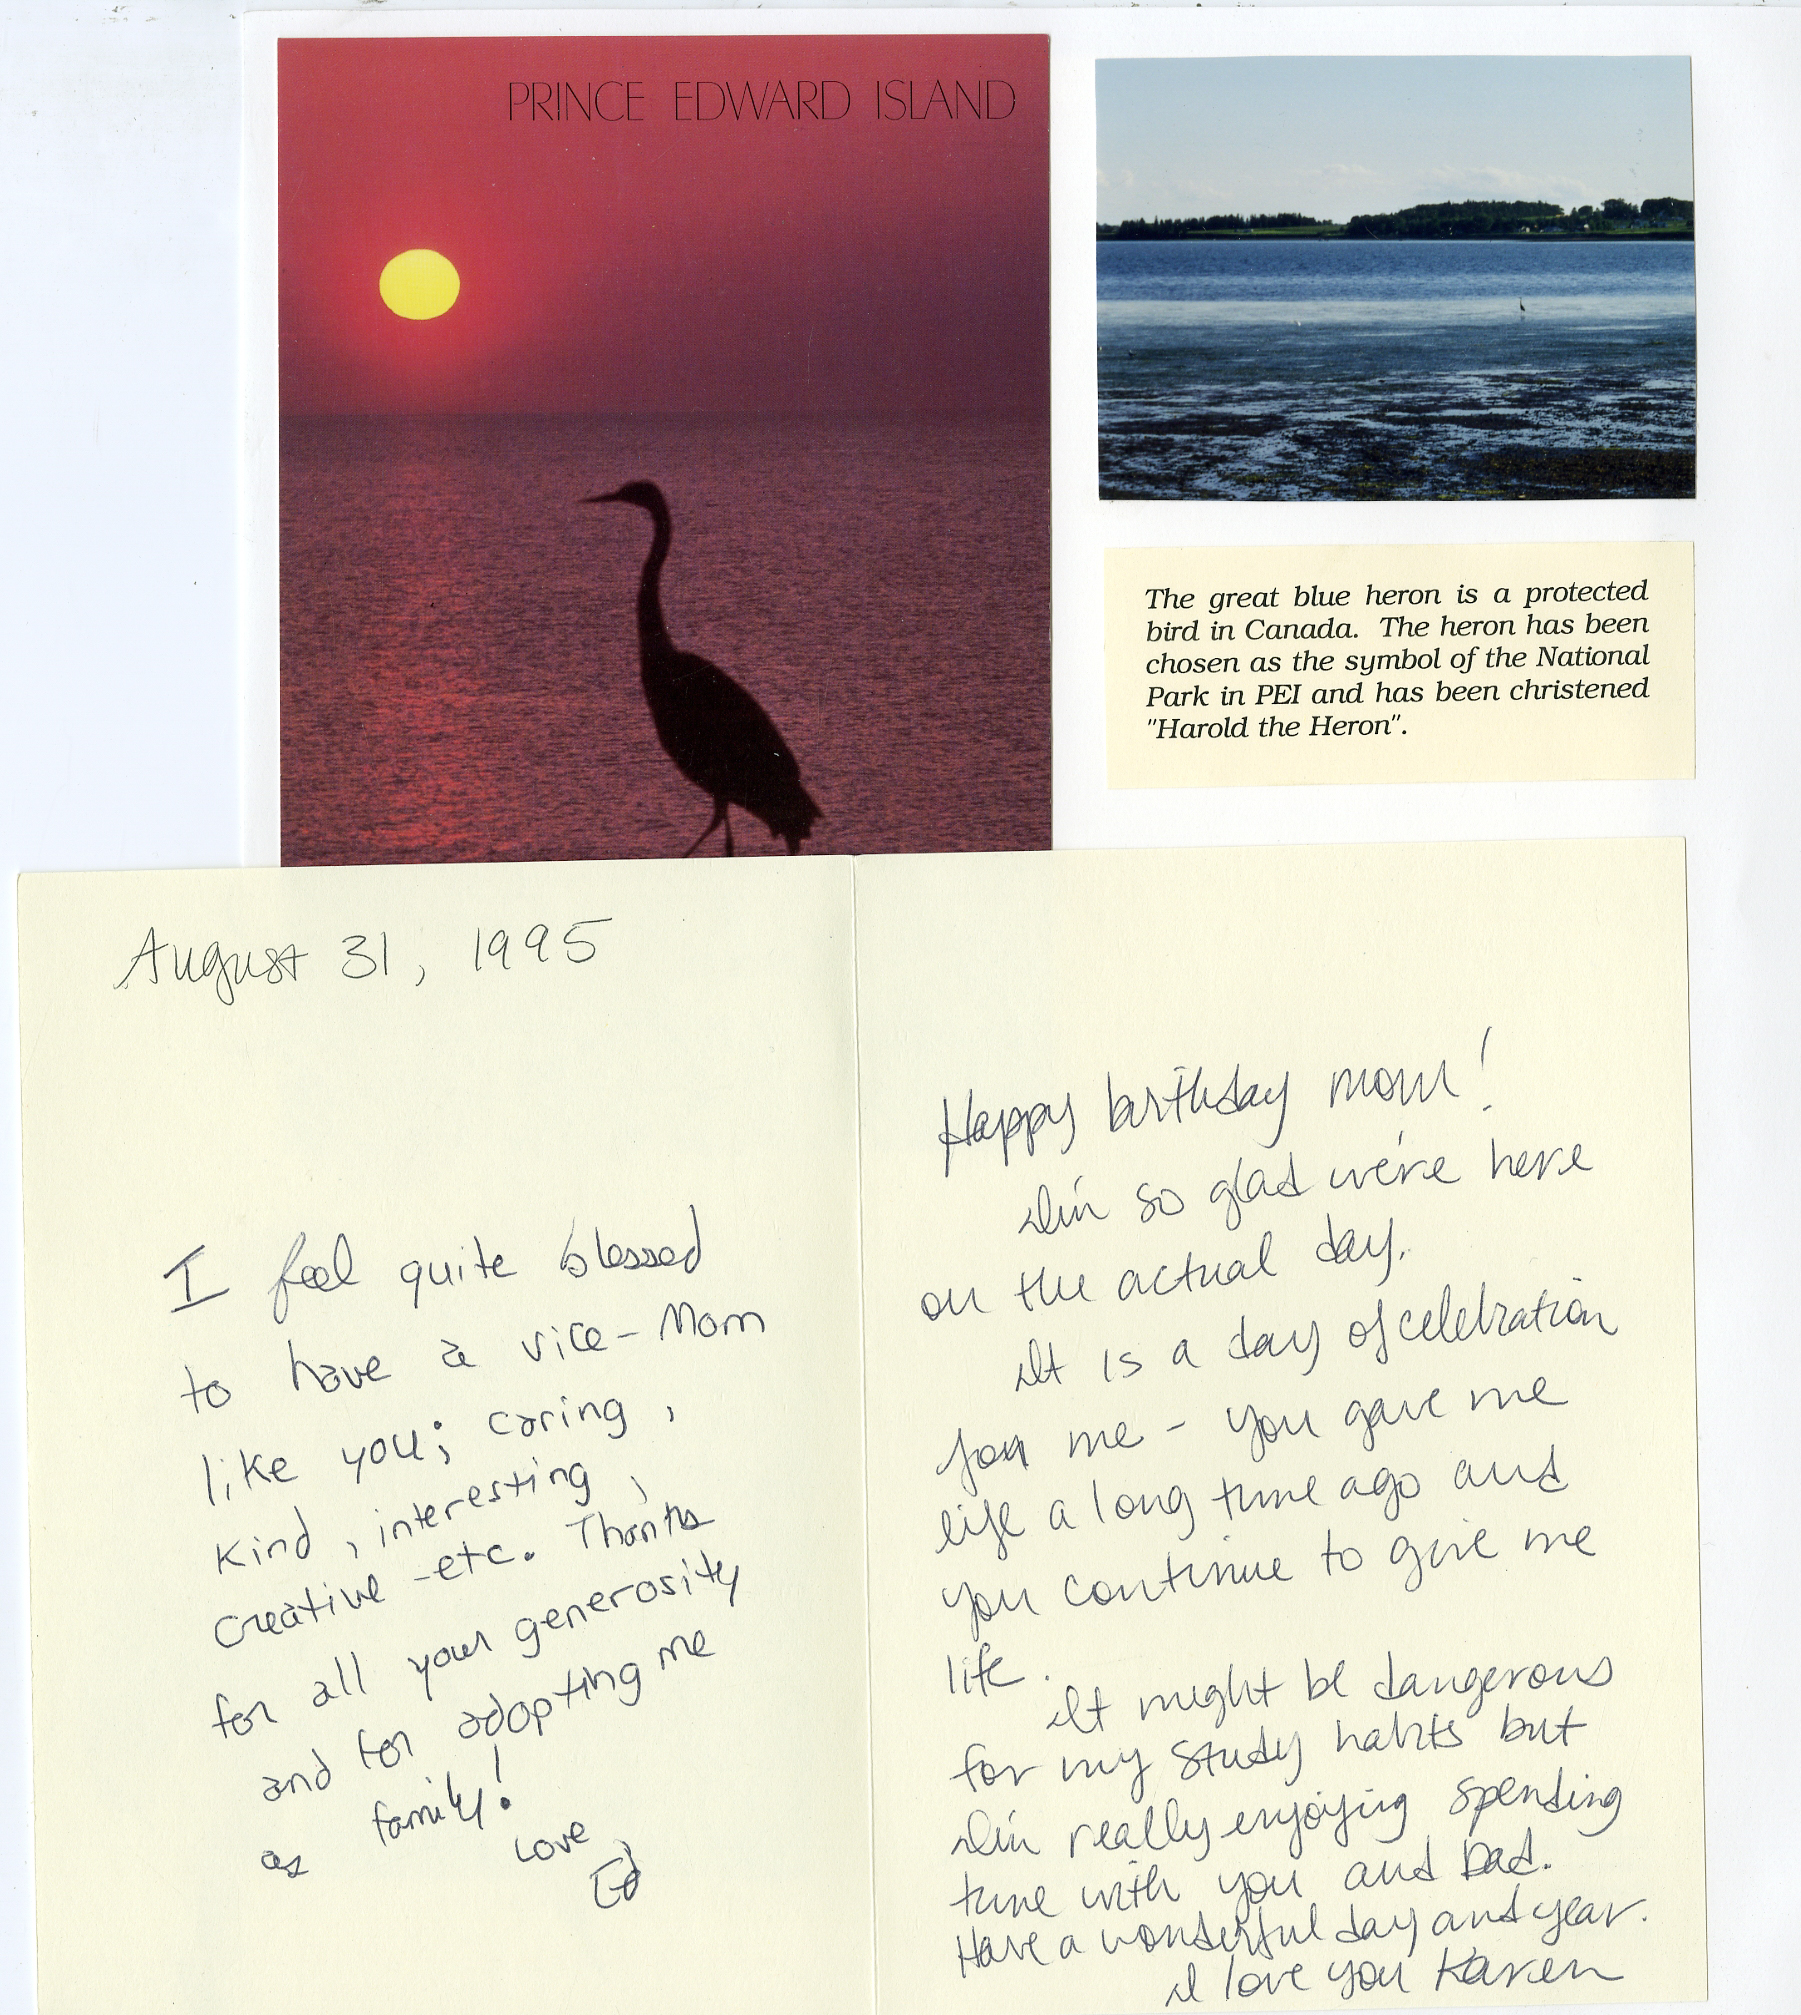 PRINCE EDWARD ISLAND
The great blue heron is a protected
bird in Canada. The heron has been
chosen as the symbol of the National
Park in PEI and has been christened
"Harold the Heron".
August 31, 1995
I feel quite blessed
to have a vice-Mom
like you; caring,
kind, interesting,
creative -etc. Thanks
for all your generosity
and for adopting me
as family!
Love
Ed
Happy birthday mom!
I'm so glad we're here
on the actual day.
It is a day of celebration
for me - you gave me
life a long time ago and
you continue to give me
life.
It might be dangerous
for my study habits but
I'm really enjoying spending
time with you and Dad.
Have a wonderful day and year.
I love you Karen